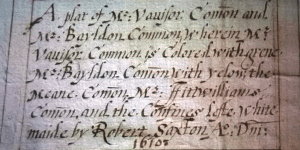 A plat of Mr: Vauisor Comon and
Mr: Baildon Common, wherein Mr:
Vauisor Common is Colored with grene
Mr: Baildon Comon with yelow, the
meane Comon, Mr: ffittwilliams
Comon, and the Confines lefte white
maide by Robert Saxton Ae: Dni:
1610: